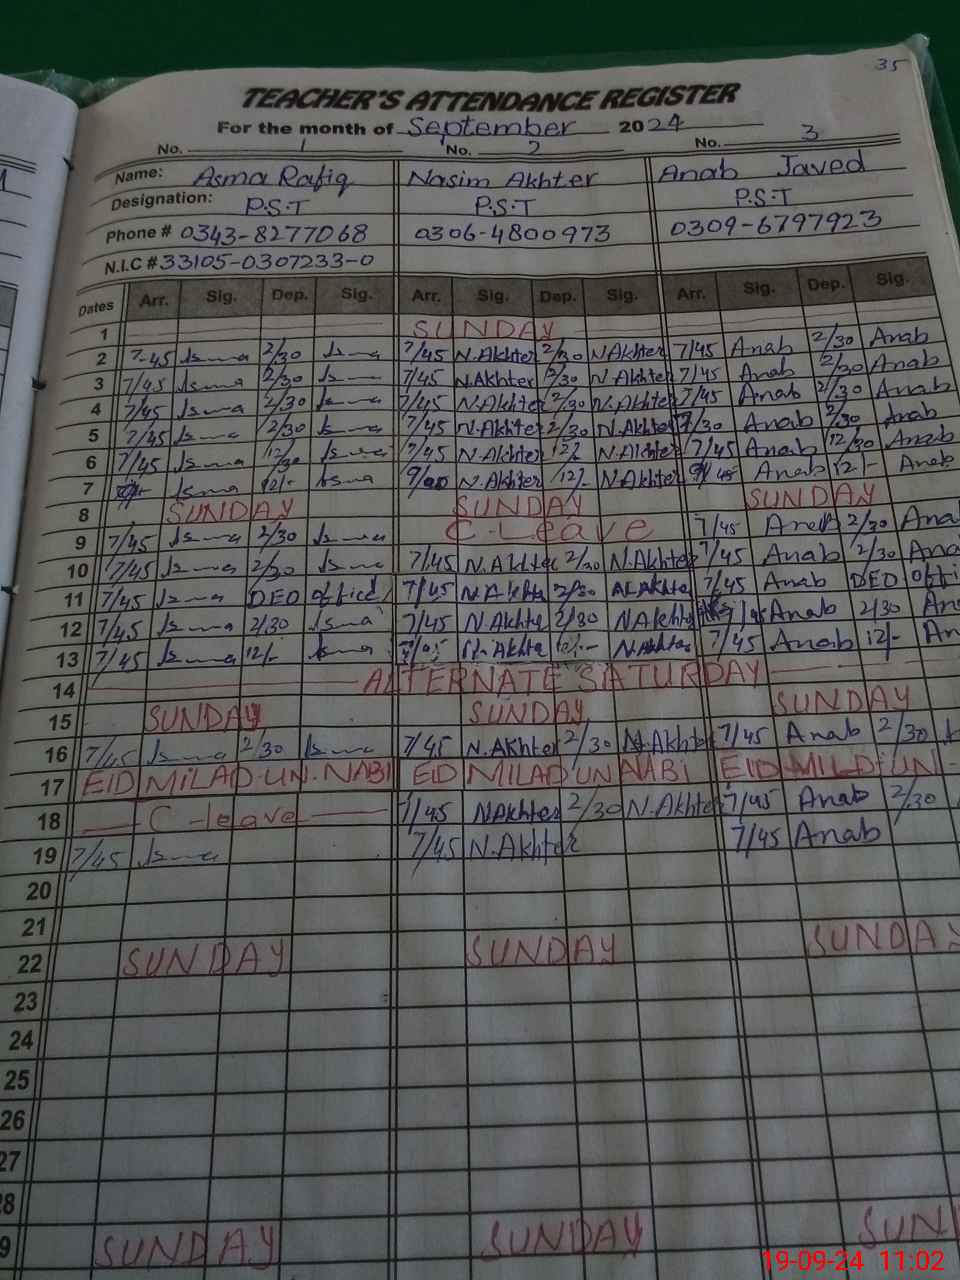 35
TEACHER'S ATTENDANCE REGISTER
For the month of September 2024
No. 1 No. 2 No. 3
Name: Asma Rafiq Nasim Akhter Anab Javed
Designation: P.S.T P.S.T P.S.T
Phone # 0343-8277068 0306-4800973 0309-6797923
N.I.C # 33105-0307233-0
Dates Arr. Sig. Dep. Sig. Arr. Sig. Dep. Sig. Arr. Sig. Dep. Sig.
1 SUNDAY
2 7-45 Isma 2/30 Isma 7/45 N.Akhter 2/30 N.Akhter 7/45 Anab 2/30 Anab
3 7/45 Isma 2/30 Isma 7/45 N.Akhter 2/30 N.Akhter 7/45 Anab 2/30 Anab
4 7/45 Isma 2/30 Isma 7/45 N.Akhter 2/30 N.Akhter 7/45 Anab 2/30 Anab
5 7/45 Isma 2/30 Isma 7/45 N.Akhter 2/30 N.Akhter 7/30 Anab 2/30 Anab
6 7/45 Isma 12/30 Isma 7/45 N.Akhter N.Akhter 7/45 Anab 12/30 Anab
7 Isma 12/- Asma 9/00 N.Akhter 12/- N.Akhter Anab 12/- Anab
8 SUNDAY SUNDAY SUNDAY
9 7/45 Isma 2/30 Isma C-Leave 7/45 Anab 2/30 Ana
10 7/45 Isma 2/30 Isma 7/45 N.Akhter 2/30 N.Akhter 7/45 Anab 2/30 Ana
11 7/45 Isma DEO office 7/45 N.Akhte 2/30 N.Akhte 7/45 Anab DEO offi
12 7/45 Isma 2/30 Isma 7/45 N.Akhte 2/30 N.Akhte Anab 2/30 An
13 7/45 Isma 12/- Isma N.Akhte N.Akhter 7/45 Anab 12/- An
14 ALTERNATE SATURDAY
15 SUNDAY SUNDAY SUNDAY
16 7/45 Isma 2/30 Isma 7/45 N.Akhter 2/30 N.Akhter 7/45 Anab 2/30
17 EID MILAD-UN-NABI EID MILAD UN NABI EID MILD UN
18 C-leave 7/45 N.Akhter 2/30 N.Akhter 7/45 Anab 2/30
19 7/45 Isma 7/45 N.Akhter 7/45 Anab
20
21
22 SUNDAY SUNDAY SUNDAY
23
24
25
26
27
28
9 SUNDAY SUNDAY SUN
19-09-24 11:02